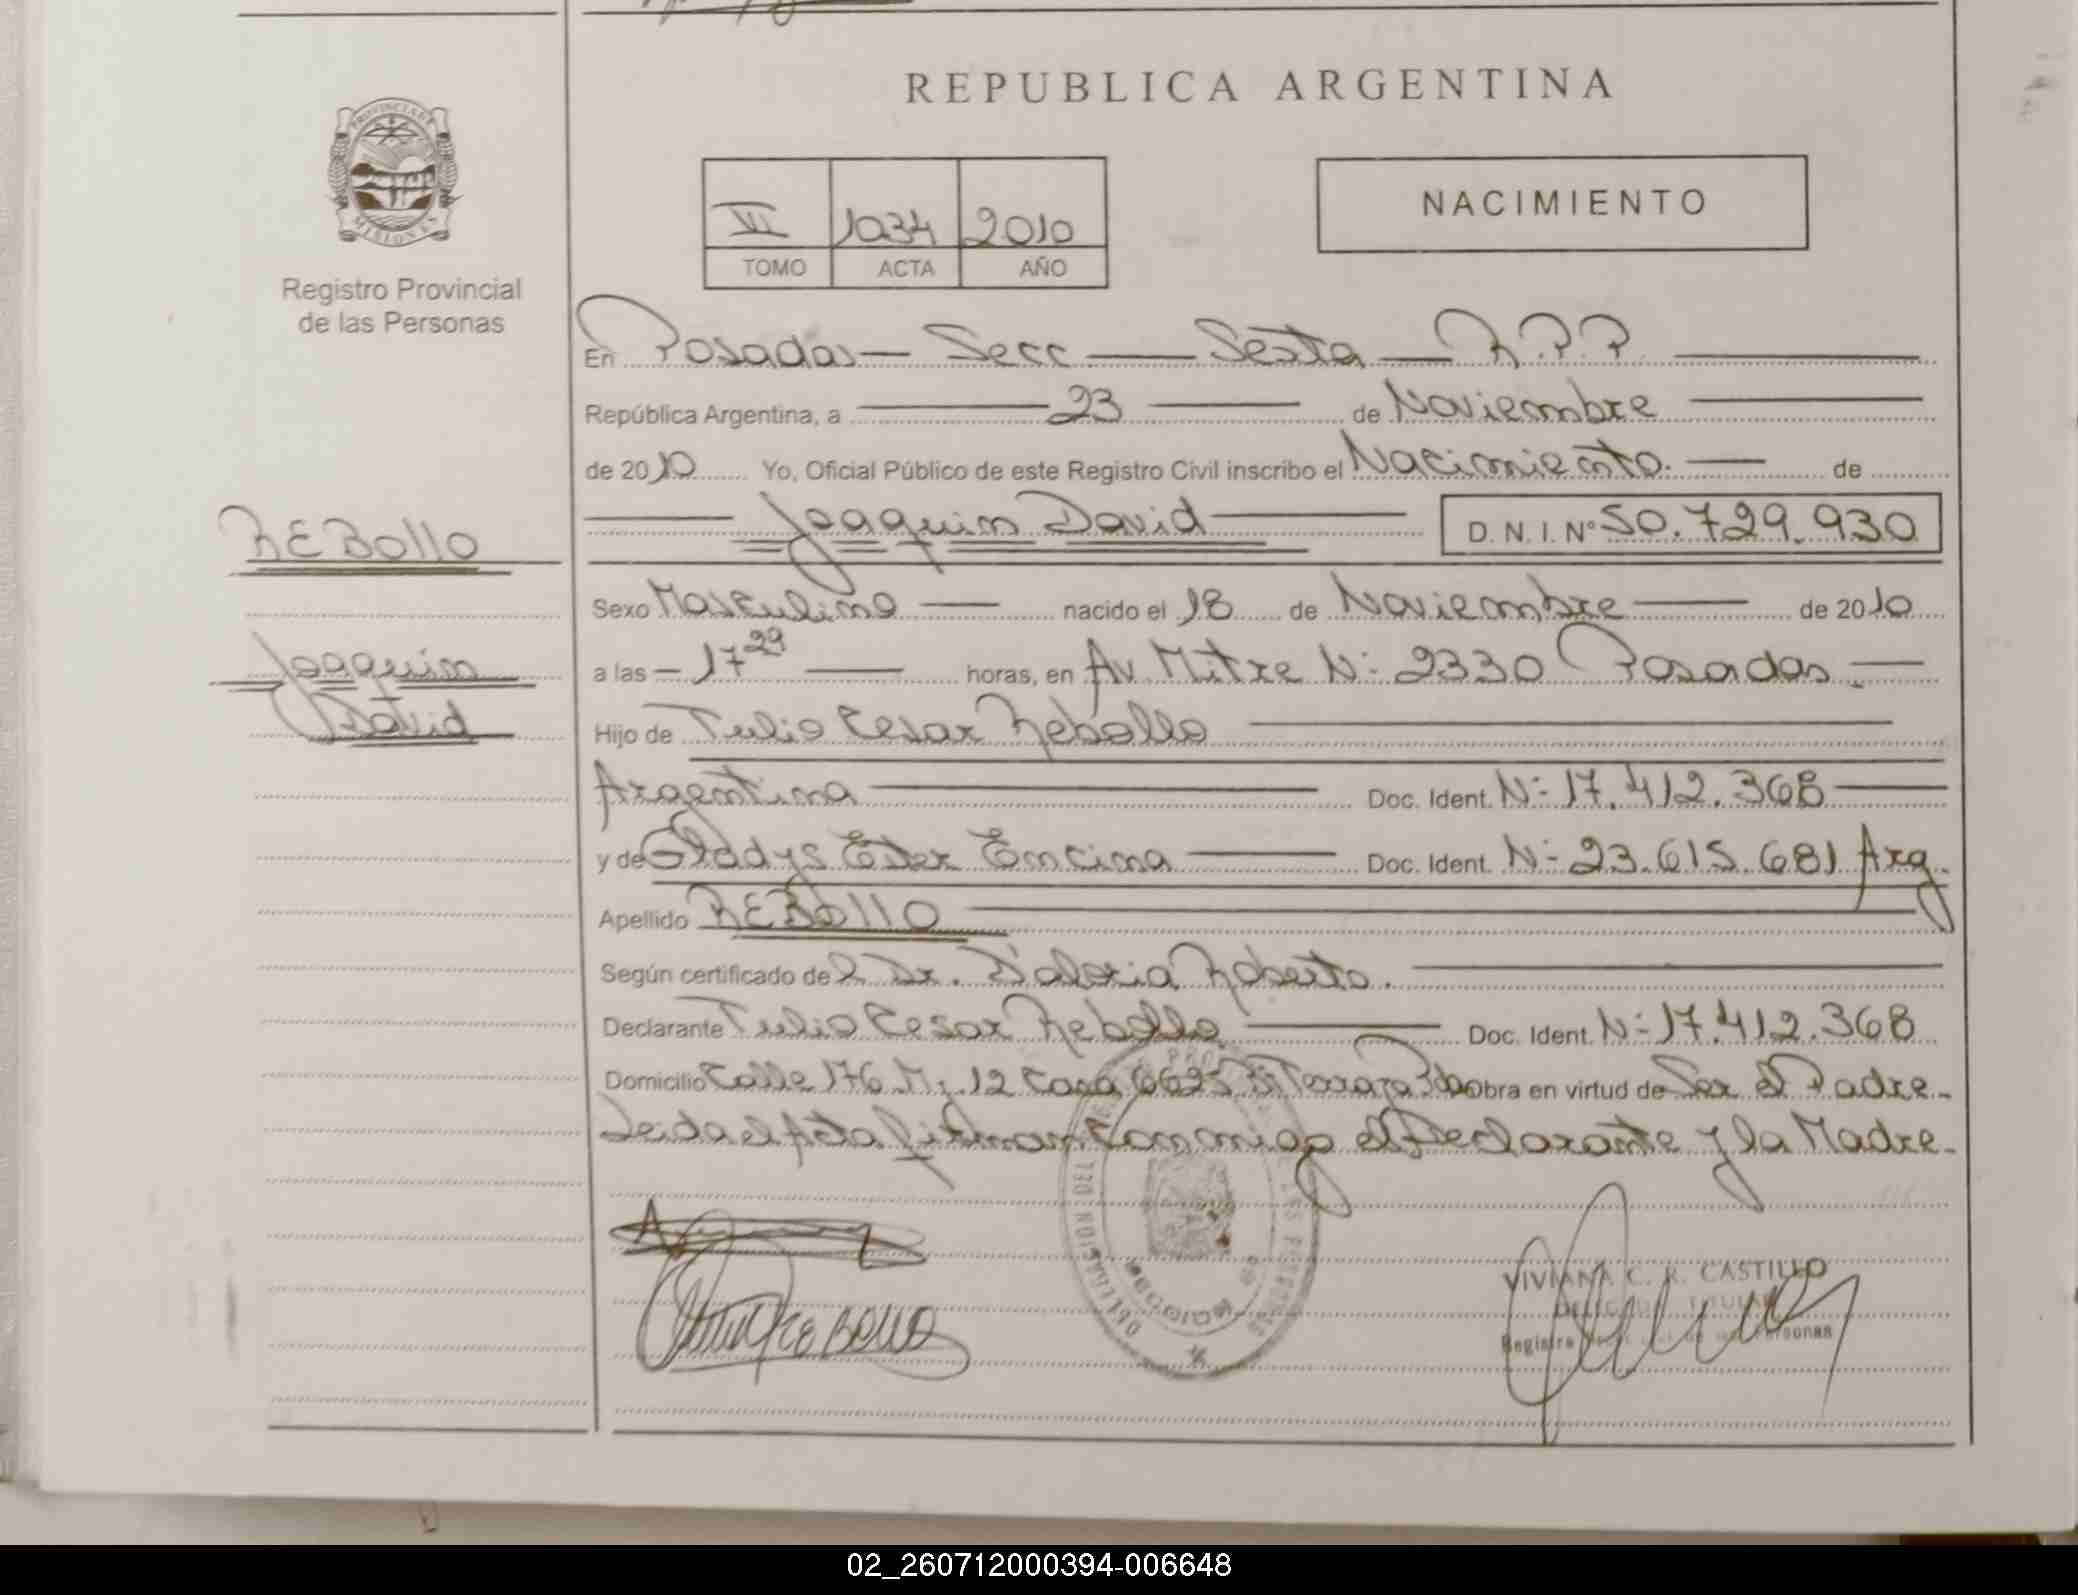 REPUBLICA ARGENTINA
PROVINCIA DE
MISIONES
Registro Provincial
de las Personas
VI 1034 2010
TOMO ACTA AÑO
NACIMIENTO
En Posadas — Secc — Sexta — R.P.P.
República Argentina, a 23 de Noviembre
de 2010 Yo, Oficial Público de este Registro Civil inscribo el Nacimiento. de
Joaquin David D.N.I. Nº 50.729.930
REBollo
Joaquin
David
Sexo Masculino nacido el 18 de Noviembre de 2010
a las 17 29 horas, en Av. Mitre N: 2330 Posadas.
Hijo de Tulio Cesar Rebollo
Argentina Doc. Ident. N: 17.412.368
y de Gladys Ester Encina Doc. Ident. N: 23.615.681 Arg.
Apellido REBollo
Según certificado del Dr. Roberto.
Declarante Tulio Cesar Rebollo Doc. Ident. N: 17.412.368
Domicilio Calle 176 M: 12 Casa 6625 obra en virtud de Ser el Padre.
Leida el Acta firman Conmigo el Declarante y la Madre.
VIVIANA C. R. CASTILLO
DELEGADA TITULAR
Registro de las Personas
02_260712000394-006648